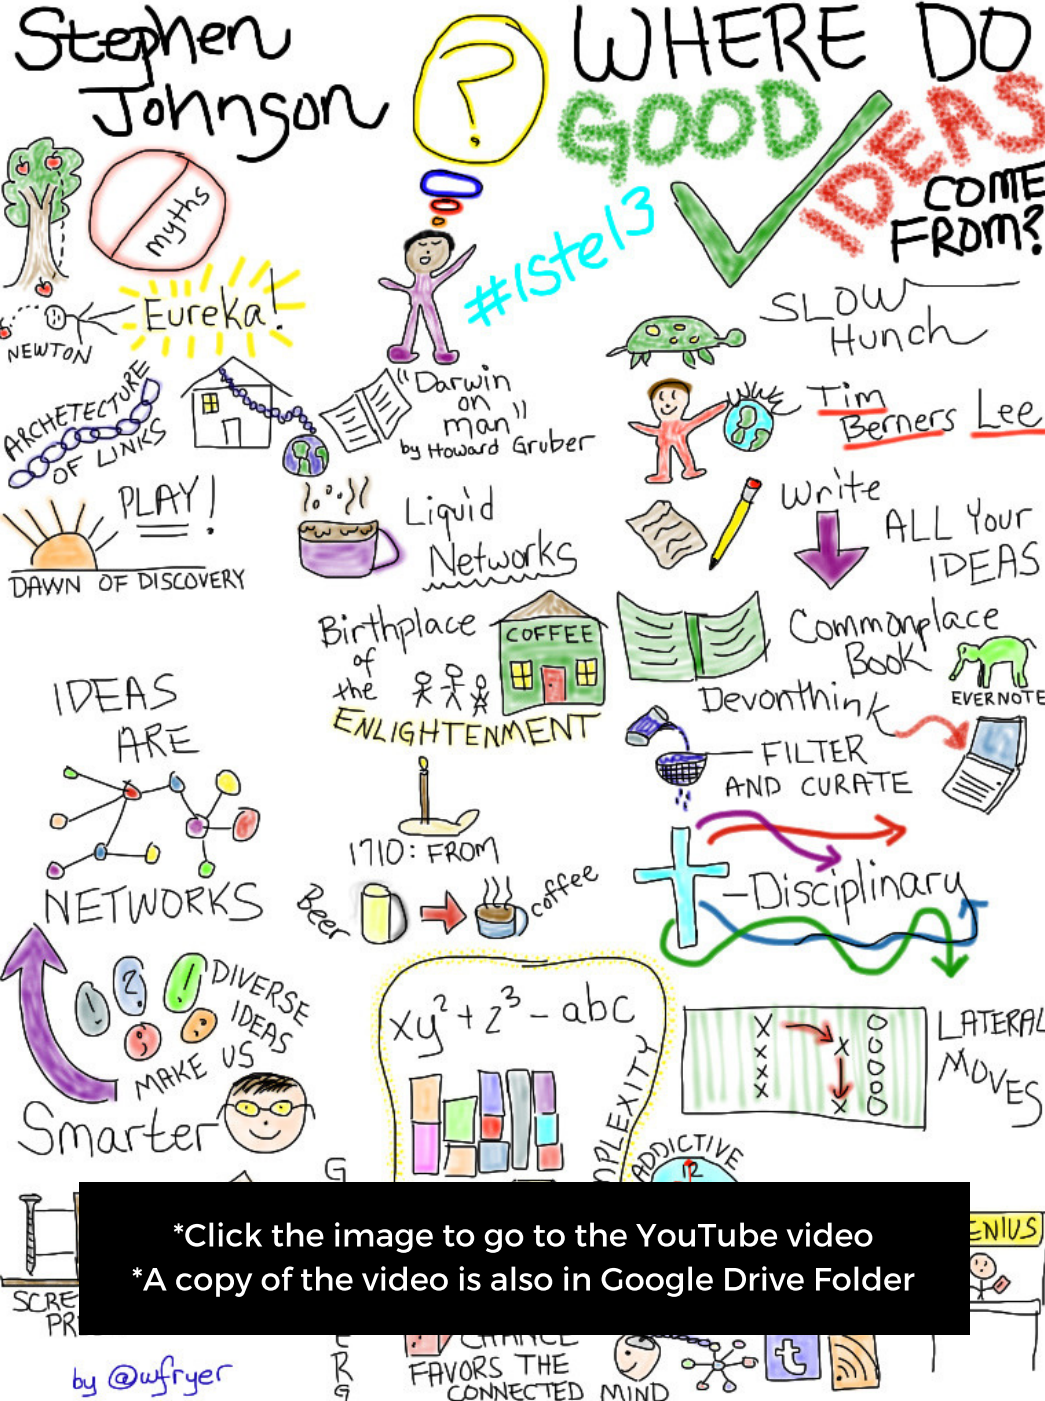 Stephen
Johnson
?
WHERE DO
GOOD
IDEAS
COME
FROM?
myths
#iste13
Eureka!
NEWTON
SLOW
Hunch
ARCHETECTURE
OF LINKS
"Darwin
on
man"
by Howard Gruber
Tim
Berners Lee
PLAY!
DAWN OF DISCOVERY
Liquid
Networks
Write
ALL Your
IDEAS
Birthplace
of
the
ENLIGHTENMENT
COFFEE
Commonplace
Book
EVERNOTE
Devonthink
FILTER
AND CURATE
IDEAS
ARE
NETWORKS
1710: FROM
Beer
coffee
-Disciplinary
! ? !
; :
DIVERSE
IDEAS
MAKE US
Smarter
xy²+z³-abc
MPLEXITY
X O
X X O
X O
X O
X O
LATERAL
MOVES
ADDICTIVE
12
G
*Click the image to go to the YouTube video
*A copy of the video is also in Google Drive Folder
ENIUS
SCRE
PR
E
R
G
CHANCE
FAVORS THE
CONNECTED MIND
t
by @wfryer